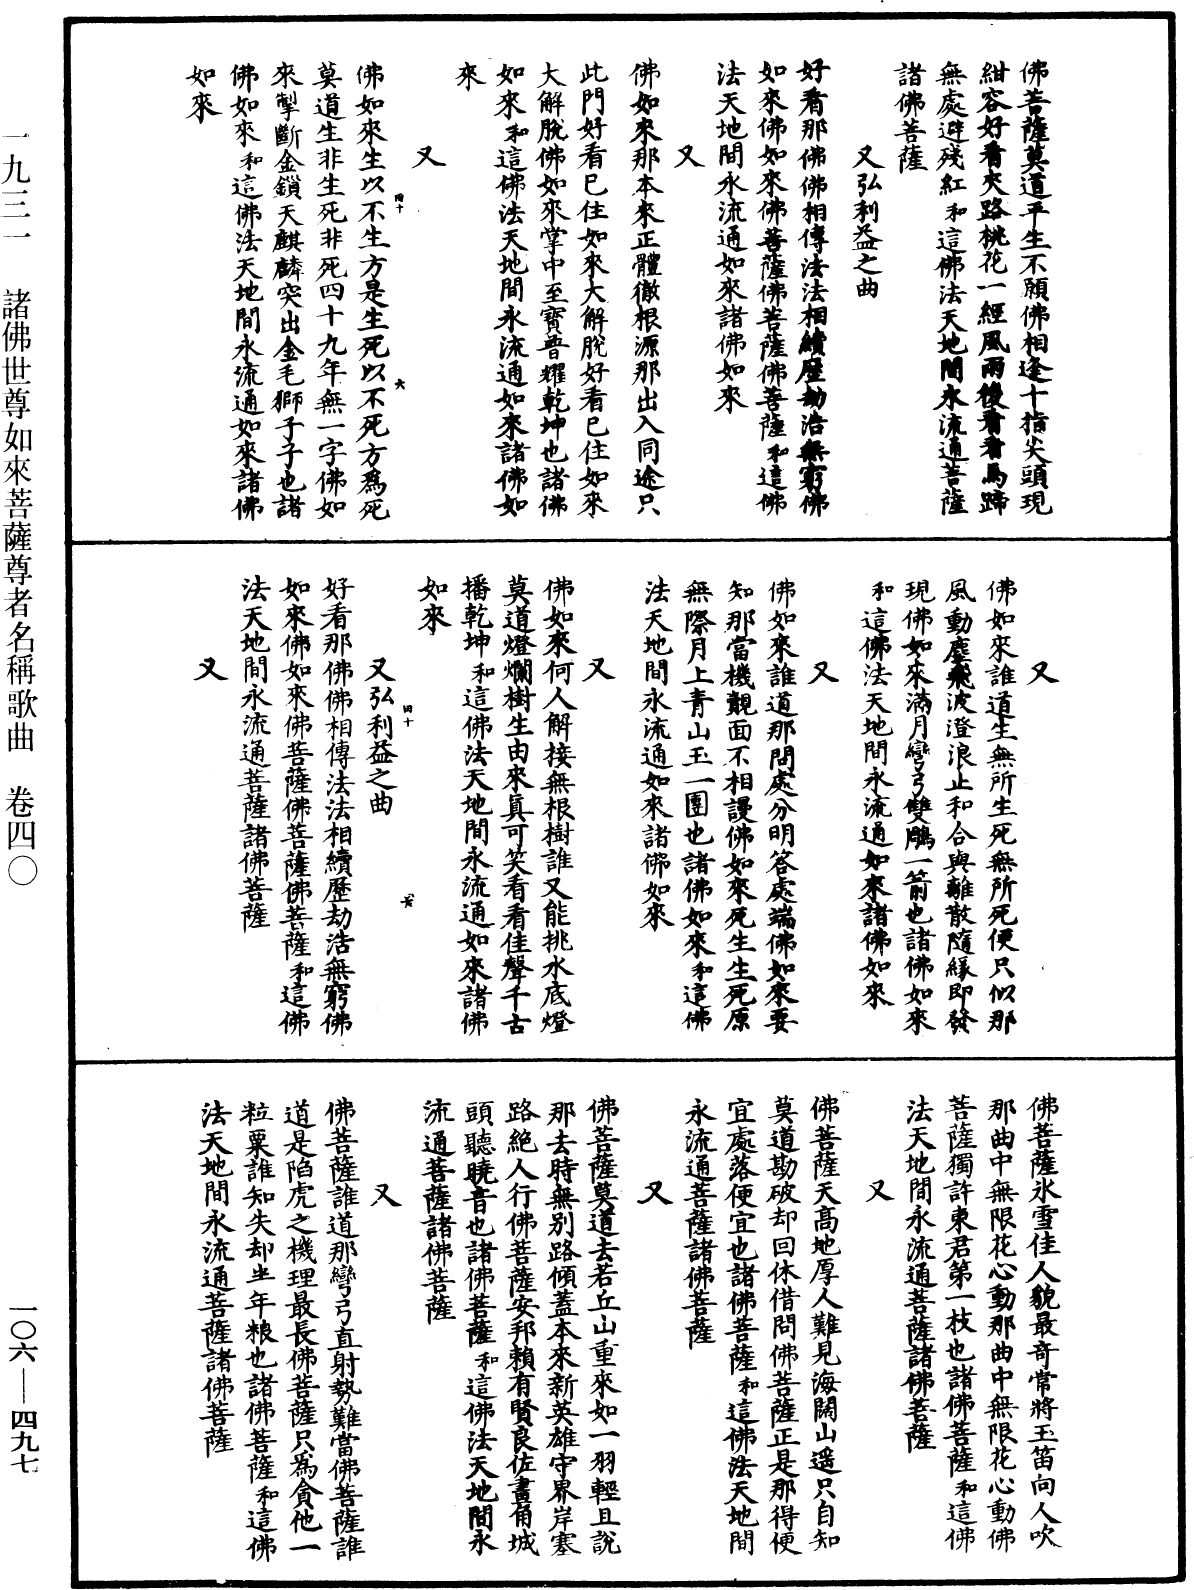 佛菩薩莫道平生不願佛相逢十指尖頭現
紺容好看夾路桃花一經風雨後看看馬蹄
無處避殘紅和這佛法天地間永流通菩薩
諸佛菩薩
又弘利益之曲
好看那佛佛相傳法法相續歷劫浩無窮佛
如來佛如來佛菩薩佛菩薩佛菩薩和這佛
法天地間永流通如來諸佛如來
又
佛如來那本來正體徹根源那出入同途只
此門好看已住如來大解脫好看已住如來
大解脫佛如來掌中至寶普耀乾坤也諸佛
如來和這佛法天地間永流通如來諸佛如
來
又
佛如來生以不生方是生死以不死方為死
莫道生非生死非死四十九年無一字佛如
來掣斷金鎖天麒麟突出金毛獅子子也諸
佛如來和這佛法天地間永流通如來諸佛
如來
四十
六
又
佛如來誰道生無所生死無所死便只似那
風動塵飛波澄浪止和合與離散隨緣即發
現佛如來滿月彎弓雙鵰一箭也諸佛如來
和這佛法天地間永流通如來諸佛如來
又
佛如來誰道那問處分明答處端佛如來要
知那當機覿面不相謾佛如來死生生死原
無際月上青山玉一團也諸佛如來和這佛
法天地間永流通如來諸佛如來
又
佛如來何人解接無根樹誰又能挑水底燈
莫道燈爛樹生由來真可笑看看佳聲千古
播乾坤和這佛法天地間永流通如來諸佛
如來
又弘利益之曲
四十
好看那佛佛相傳法法相續歷劫浩無窮佛
如來佛如來佛菩薩佛菩薩佛菩薩和這佛
法天地間永流通菩薩諸佛菩薩
又
佛菩薩氷雪佳人貌最奇常將玉笛向人吹
那曲中無限花心動那曲中無限花心動佛
菩薩獨許東君第一枝也諸佛菩薩和這佛
法天地間永流通菩薩諸佛菩薩
又
佛菩薩天高地厚人難見海闊山遥只自知
莫道勘破却回休借問佛菩薩正是那得便
宜處落便宜也諸佛菩薩和這佛法天地間
永流通菩薩諸佛菩薩
又
佛菩薩莫道去若丘山重來如一羽輕且說
那去時無別路傾蓋本來新英雄守界岸塞
路絕人行佛菩薩安邦賴有賢良佐畫角城
頭聽曉音也諸佛菩薩和這佛法天地間永
流通菩薩諸佛菩薩
又
佛菩薩誰道那彎弓直射勢難當佛菩薩誰
道是陷虎之機理最長佛菩薩只為貪他一
粒粟誰知失却半年糧也諸佛菩薩和這佛
法天地間永流通菩薩諸佛菩薩
一九三一 諸佛世尊如來菩薩尊者名稱歌曲 卷四〇
一〇六—四九七